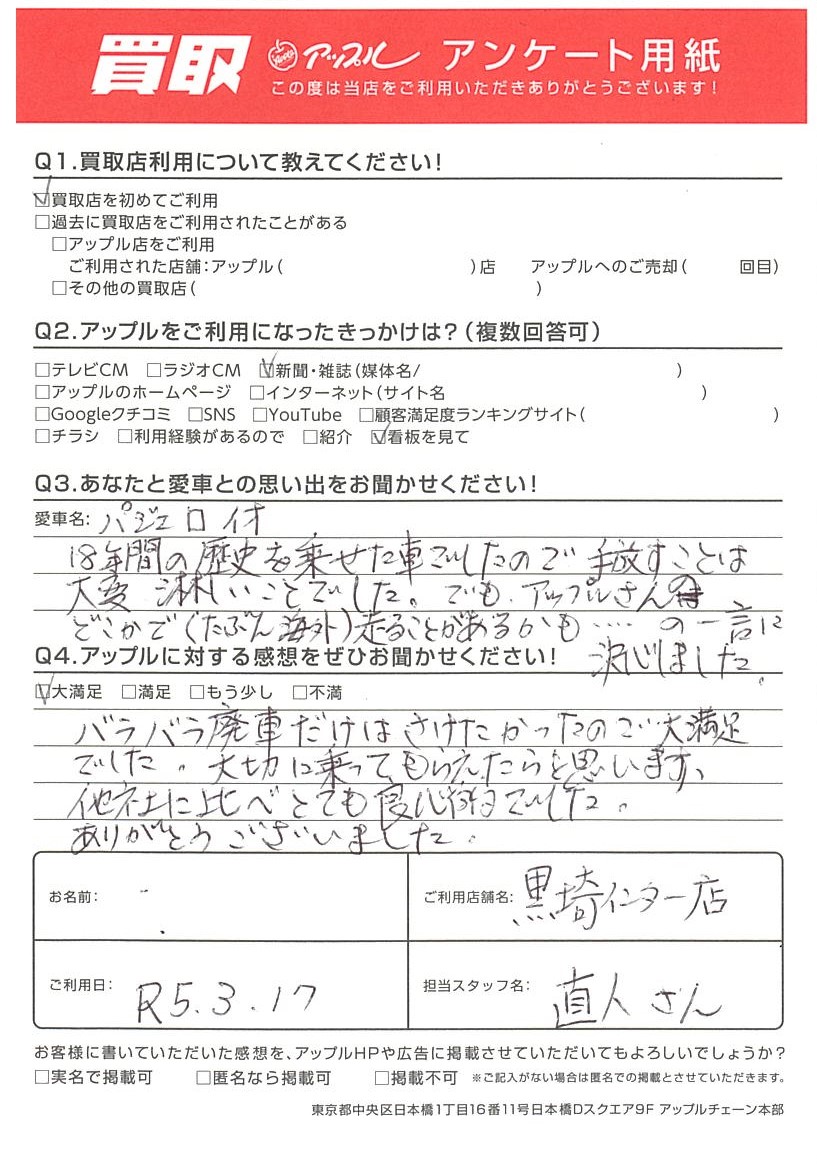 買取 アップル アンケート用紙
この度は当店をご利用いただきありがとうございます!
Q1.買取店利用について教えてください!
☑買取店を初めてご利用
□過去に買取店をご利用されたことがある
□アップル店をご利用
ご利用された店舗:アップル( )店 アップルへのご売却( 回目)
□その他の買取店( )
Q2.アップルをご利用になったきっかけは?(複数回答可)
□テレビCM □ラジオCM ☑新聞・雑誌(媒体名/ )
□アップルのホームページ □インターネット(サイト名 )
□Googleクチコミ □SNS □YouTube □顧客満足度ランキングサイト( )
□チラシ □利用経験があるので □紹介 ☑看板を見て
Q3.あなたと愛車との思い出をお聞かせください!
愛車名: パジェロ イオ
18年間の歴史を乗せた車でしたので 手放すことは
大変 淋しいことでした。でも、アップルさんの
どこかで(たぶん海外)走ることがあるかも‥‥ の一言に
決心しました。
Q4.アップルに対する感想をぜひお聞かせください!
☑大満足 □満足 □もう少し □不満
バラバラ廃車だけはさけたかったので大満足
でした。大切に乗ってもらえたらと思います、
他社に比べとても良心的でした。
ありがとうございました。
お名前:
ご利用店舗名: 黒埼インター店
ご利用日: R5.3.17
担当スタッフ名: 直人さん
お客様に書いていただいた感想を、アップルHPや広告に掲載させていただいてもよろしいでしょうか?
□実名で掲載可 □匿名なら掲載可 □掲載不可 ※ご記入がない場合は匿名での掲載とさせていただきます。
東京都中央区日本橋1丁目16番11号日本橋Dスクエア9F アップルチェーン本部